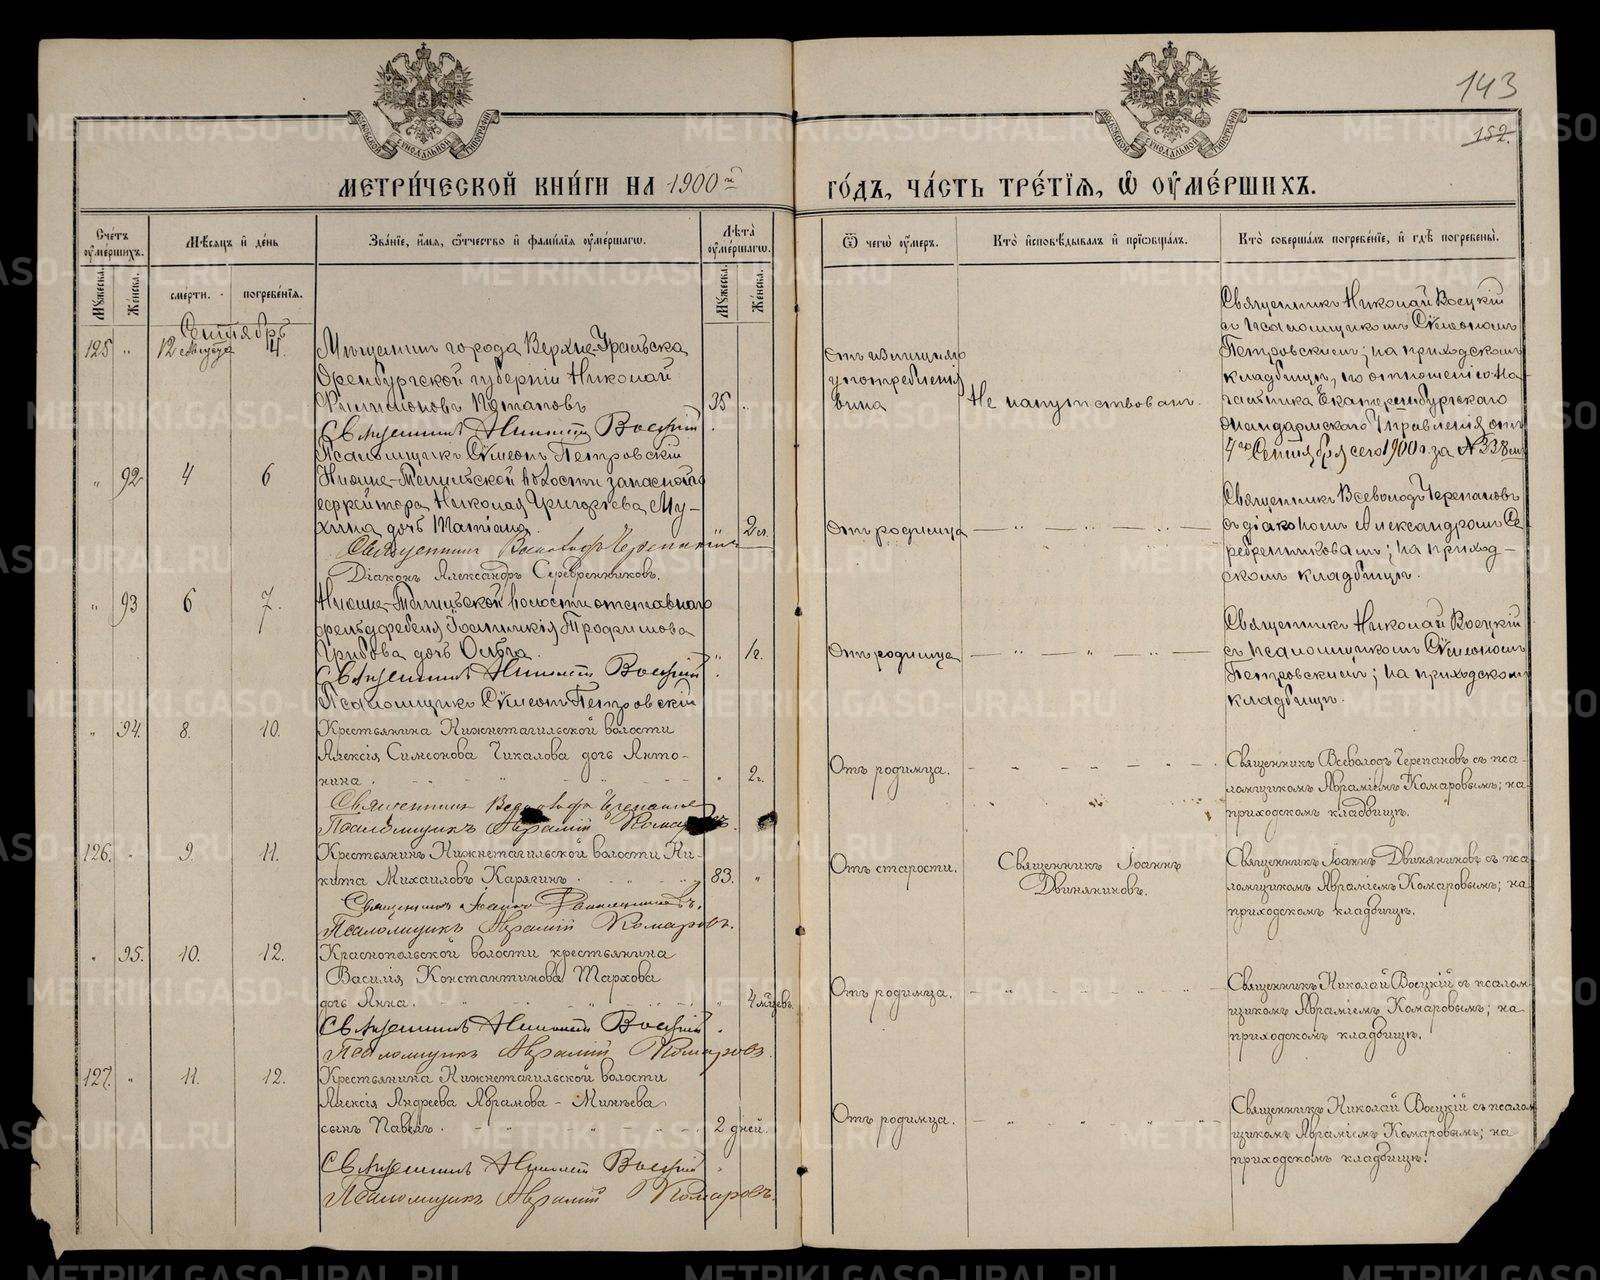 143
152.
МЕТРИЧЕСКОЙ КНИГИ НА 1900й
ГОДЪ, ЧАСТЬ ТРЕТІѦ, Ѡ ОУМЕРШИХЪ.
Счетъ оумершихъ.
Мѣсяцъ и день
Званіе, имя, отчество и фамилія оумершагѡ.
Лѣта оумершагѡ.
Ѿ чегѡ оумеръ.
Кто исповѣдывалъ и пріобщалъ.
Кто совершалъ погребеніе, и гдѣ погребены.
Мужеска.
Женска.
смерти.
погребенія.
Мужеска.
Женска.
Сентябрь
125 " 12 Августа 4.
Мѣщанинъ города Верхне-Уральска
Оренбургской губерніи Николай
Потаповъ 35 "
Священникъ Николай Восцкій
Псаломщикъ Сѵмеонъ Петровскій
отъ излишняго
употребленія
вина
Не напутствованъ.
Священникъ Николай Восцкій
съ псаломщикомъ Сѵмеономъ
Петровскимъ; на приходскомъ
кладбищѣ, по отношенію На-
чальника Екатеринбургскаго
Жандармскаго Управленія отъ
4го Сентября сего 1900 г. за № 338
" 92 4 6
Нижне-Тагильской волости запаснаго
ефрейтора Николая Григорьева Му-
хина дочь 2
Священникъ Всеволодъ Черепановъ
Діаконъ Александръ Серебренниковъ.
Отъ родимца
Священникъ Всеволодъ Черепановъ
съ діакономъ Александромъ Се-
ребренниковымъ; на приход-
скомъ кладбищѣ.
" 93 6 7.
Нижне-Тагильской волости отставного
фельдфебеля Іоанникія Трофимова
Грибова дочь Ольга. " 1г.
Священникъ Николай Восцкій
Псаломщикъ Сѵмеонъ Петровскій
Отъ родимца
Священникъ Николай Восцкій
съ псаломщикомъ Сѵмеономъ
Петровскимъ; на приходскомъ
кладбищѣ.
" 94. 8. 10.
Крестьянина Нижнетагильской волости
Алексія Симеонова Чикалова дочь Анто-
нина. " 2г.
Священникъ Всеволодъ Черепановъ
Псаломщикъ Авраамій Комаровъ.
Отъ родимца.
Священникъ Всеволодъ Черепановъ съ пса-
ломщикомъ Авраміемъ Комаровымъ; на
приходскомъ кладбищѣ.
126. " 9. 11.
Крестьянинъ Нижнетагильской волости Ни-
кита Михаиловъ Карягинъ. 83. "
Священникъ Іоаннъ Двиняниновъ.
Псаломщикъ Авраамій Комаровъ.
Отъ старости.
Священникъ Іоаннъ
Двиняниновъ.
Священникъ Іоаннъ Двиняниновъ съ пса-
ломщикомъ Авраміемъ Комаровымъ; на
приходскомъ кладбищѣ.
" 95. 10. 12.
Краснопольской волости крестьянина
Василія Константинова Тархова
дочь Анна. " 4 мѣсяцевъ.
Священникъ Николай Восцкій.
Псаломщикъ Авраамій Комаровъ.
Отъ родимца.
Священникъ Николай Восцкій съ псалом-
щикомъ Авраміемъ Комаровымъ; на
приходскомъ кладбищѣ.
127. " 11. 12.
Крестьянина Нижнетагильской волости
Алексія Андреева Абрамова - Минѣева
сынъ Павелъ. 2 дней.
Священникъ Николай Восцкій
Псаломщикъ Авраамій Комаровъ.
Отъ родимца.
Священникъ Николай Восцкій съ псалом-
щикомъ Авраміемъ Комаровымъ; на
приходскомъ кладбищѣ.
METRIKI.GASO-URAL.RU